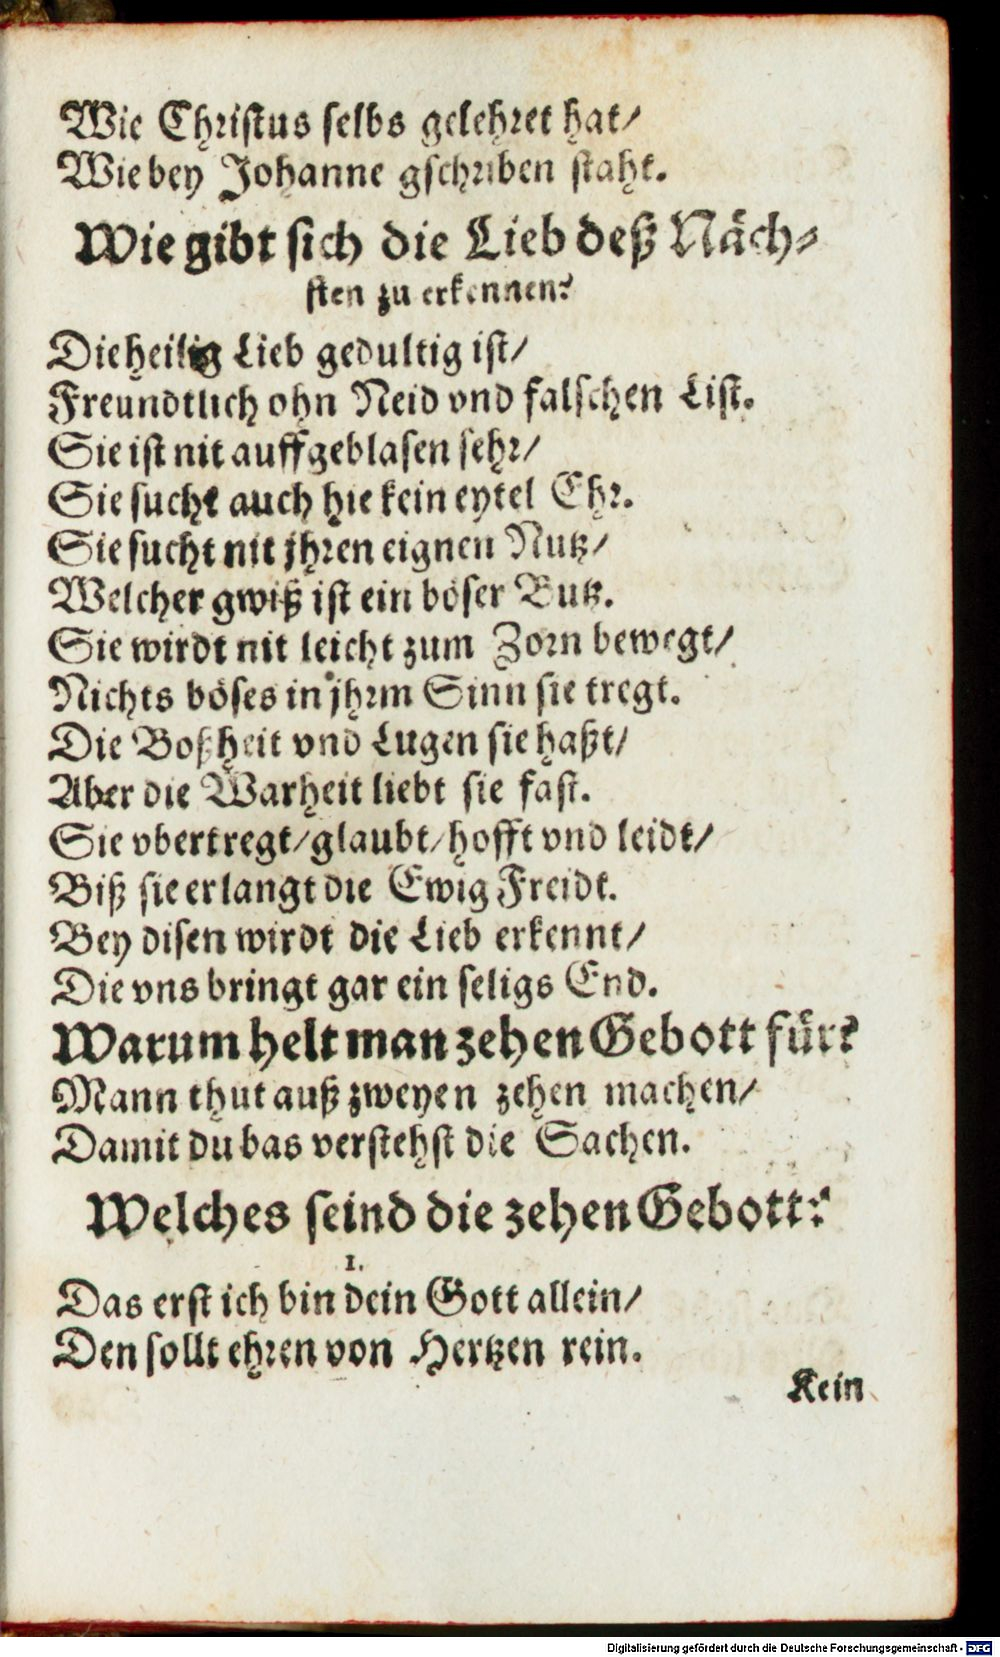 Wie Christus selbs gelehret hat/
Wie bey Johanne gschriben staht.
Wie gibt sich die Lieb deß Näch-
sten zu erkennen?
Die heilig Lieb gedultig ist/
Freundtlich ohn Neid vnd falschen List.
Sie ist nit auffgeblasen sehr/
Sie sucht auch hie kein eytel Ehr.
Sie sucht nit jhren eignen Nutz/
Welcher gwiß ist ein böser Butz.
Sie wirdt nit leicht zum Zorn bewegt/
Nichts böses in jhrm Sinn sie tregt.
Die Boßheit vnd Lugen sie haßt/
Aber die Warheit liebt sie fast.
Sie vbertregt/glaubt/hofft vnd leidt/
Biß sie erlangt die Ewig Freidt.
Bey disen wirdt die Lieb erkennt/
Die vns bringt gar ein seligs End.
Warum helt man zehen Gebott für?
Mann thut auß zweyen zehen machen/
Damit du bas verstehst die Sachen.
Welches seind die zehen Gebott?
1.
Das erst ich bin dein Gott allein/
Den sollt ehren von Hertzen rein.
Kein
Digitalisierung gefördert durch die Deutsche Forschungsgemeinschaft - DFG